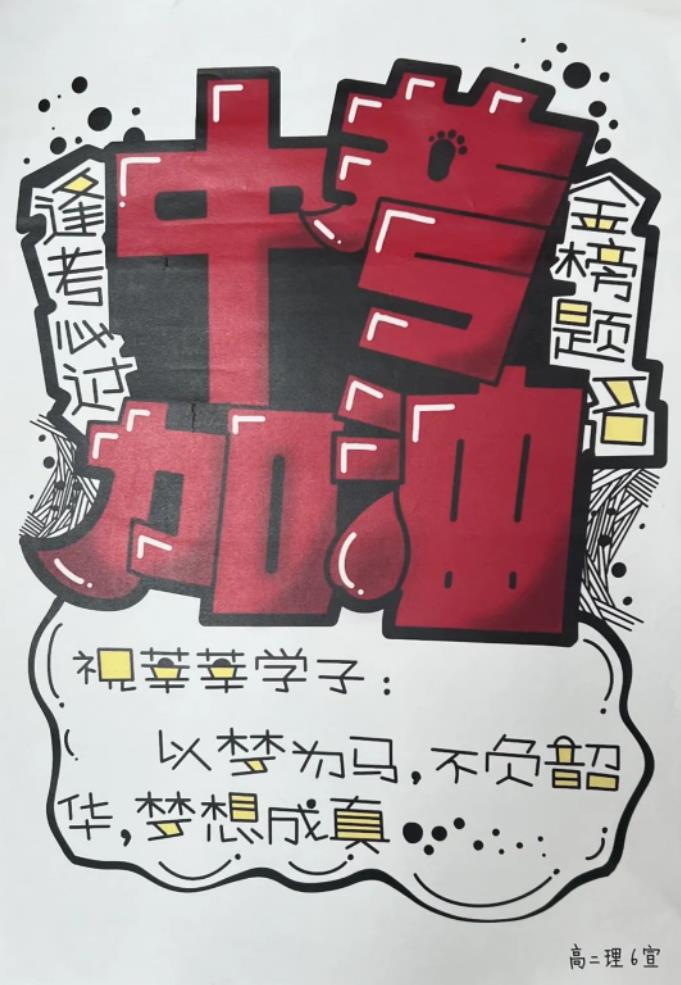 中考
加油
逢考必过
金榜题名
祝莘莘学子：
以梦为马，不负韶
华，梦想成真
高二理6宣